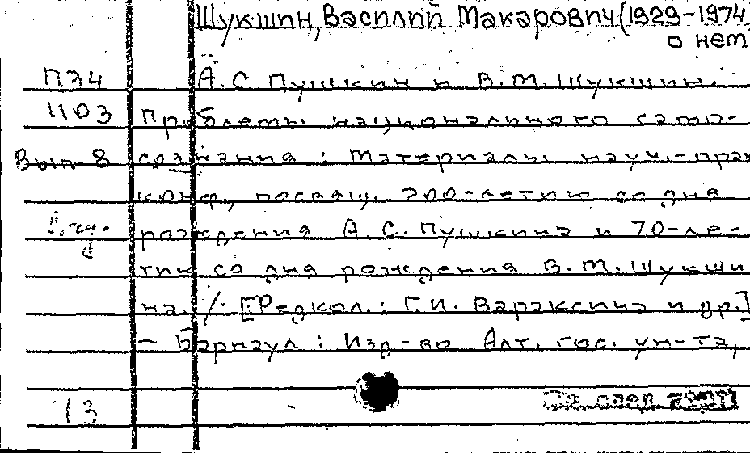 Шукшин, Василий Макарович (1929-1974
о нем
П34 А.С Пушкин и В.М. Шукшин.
1103 Проблемы национального само-
Вып 8 сознания : Материалы науч.-прак
конф., посвящ. 200-летию со дня
рождения А.С. Пушкина и 70-ле-
тию со дня рождения В.М. Шукши
на. / [Редкол.: Г.И. Вараксина и др.]
- Барнаул : Изд-во Алт. гос. ун-та,
13 См. след